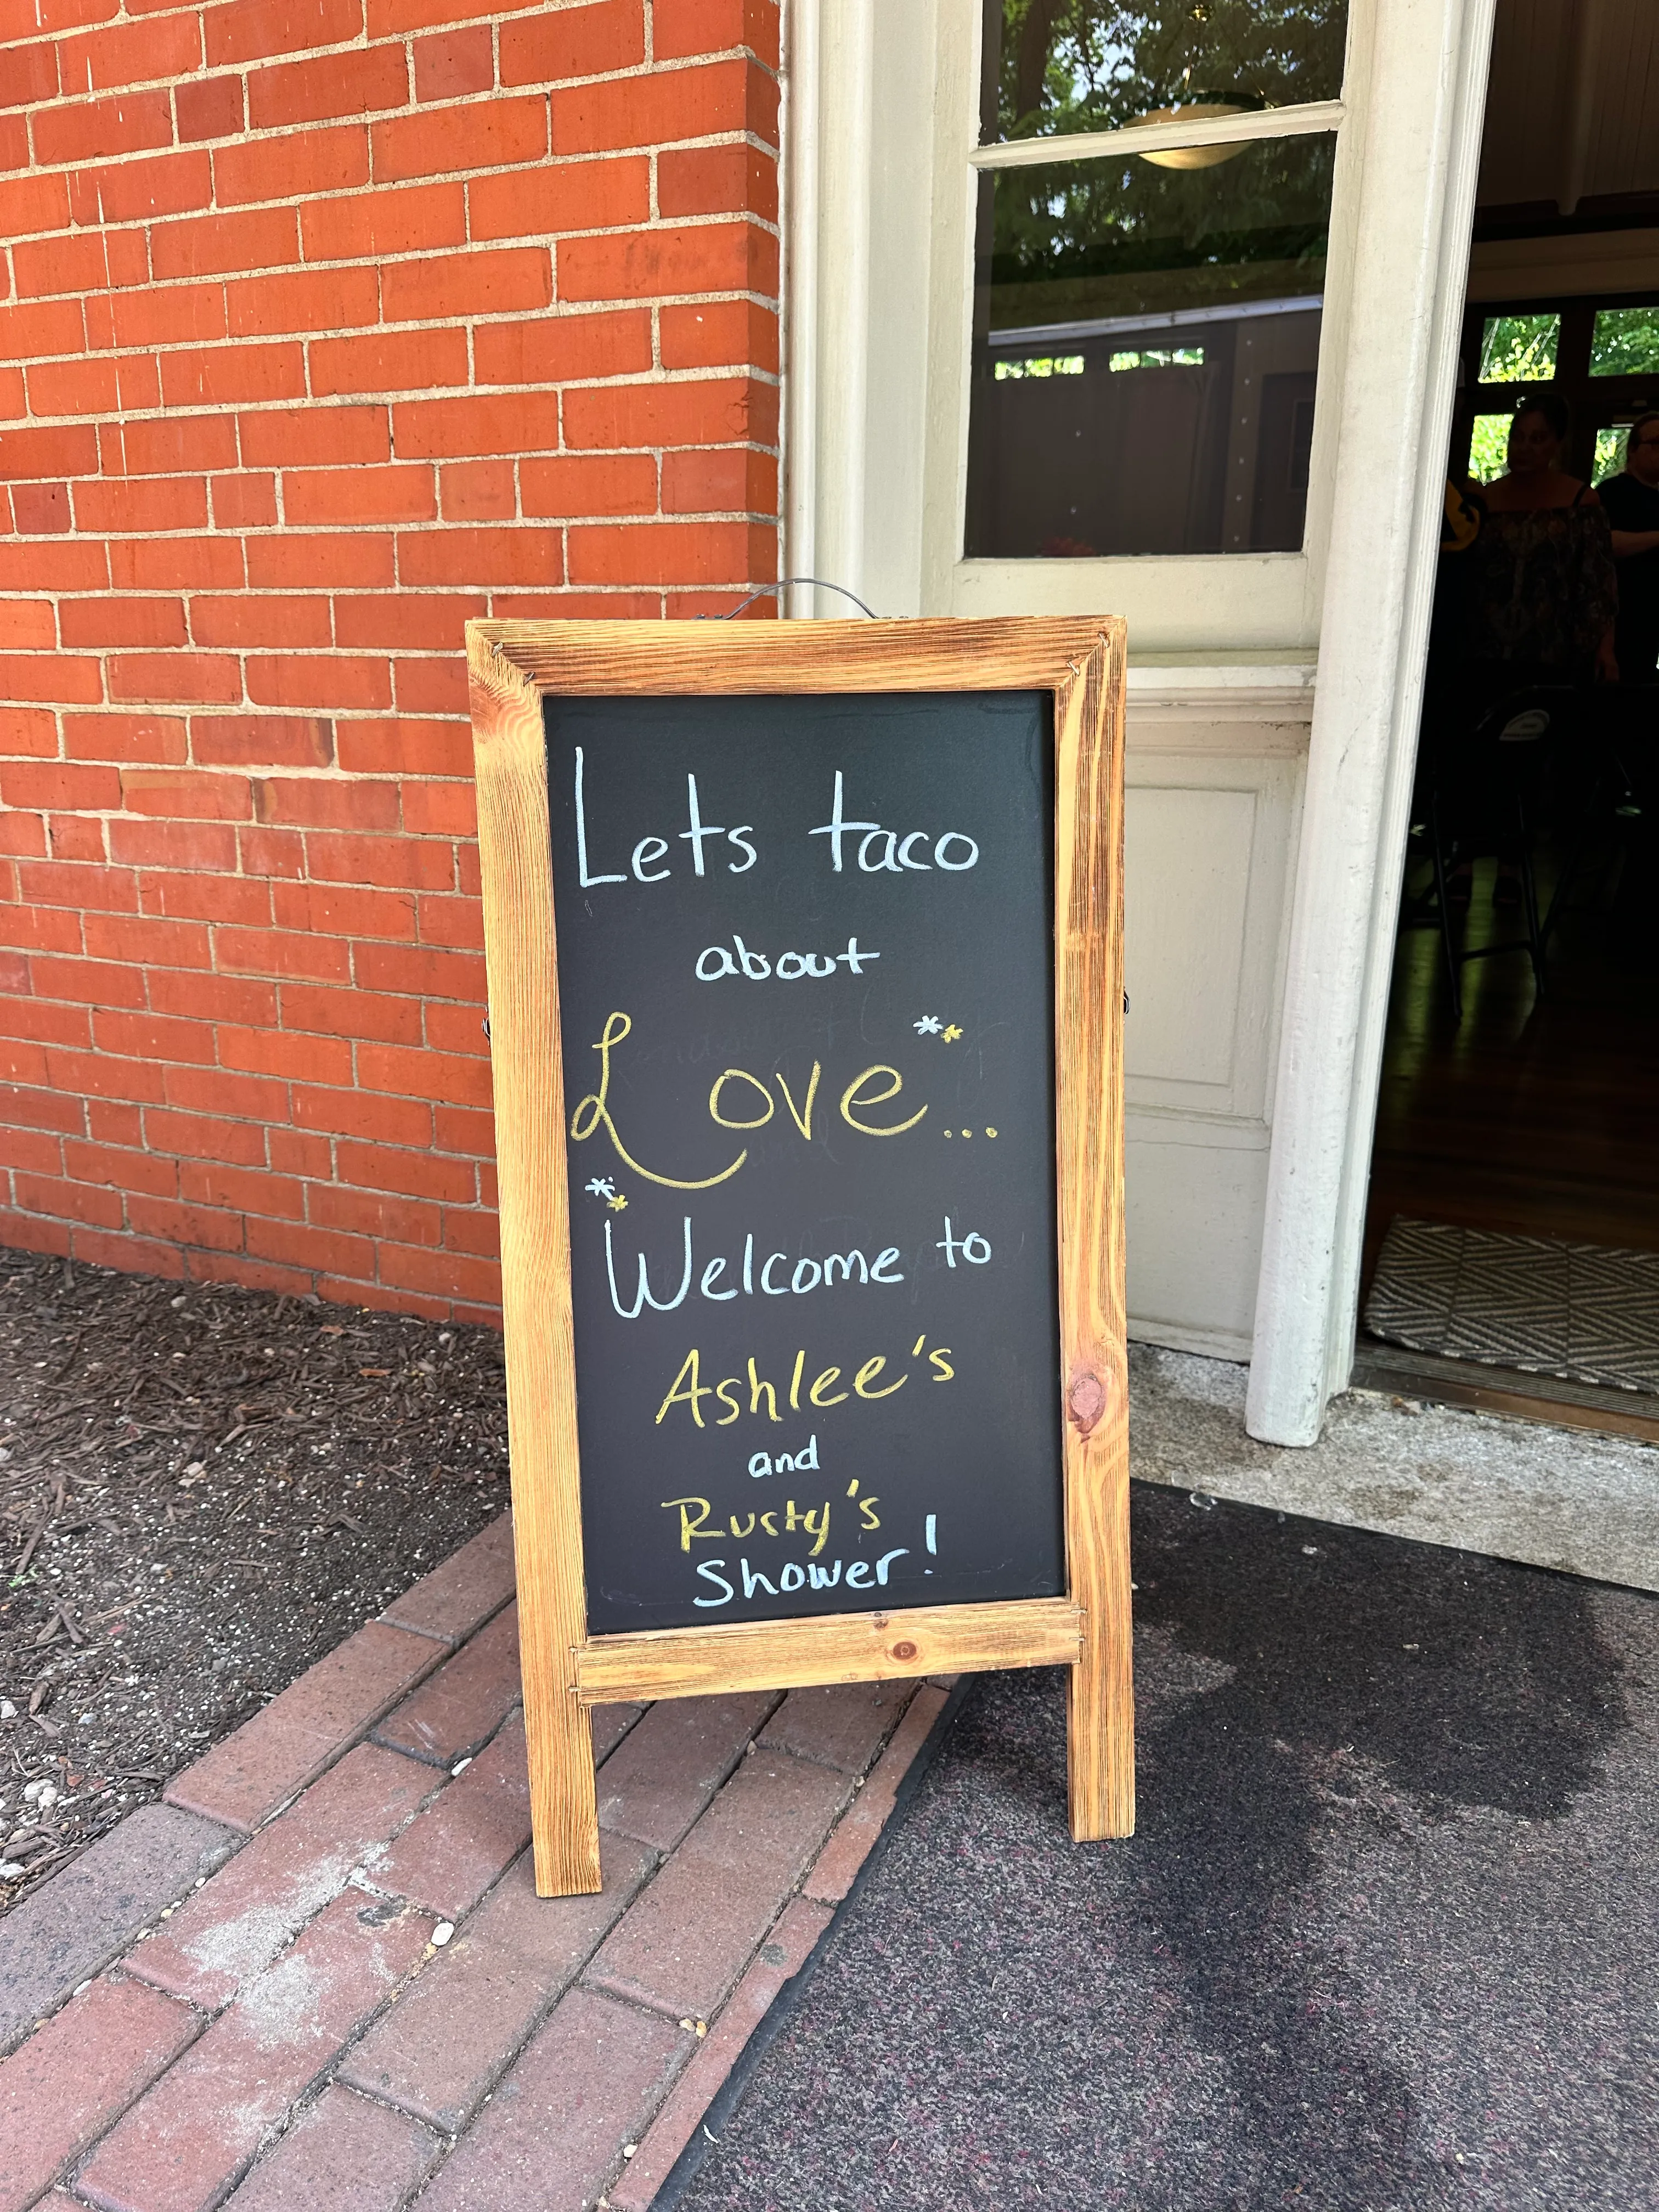 Lets taco
about
Love...
Welcome to
Ashlee's
and
Rusty's
Shower!